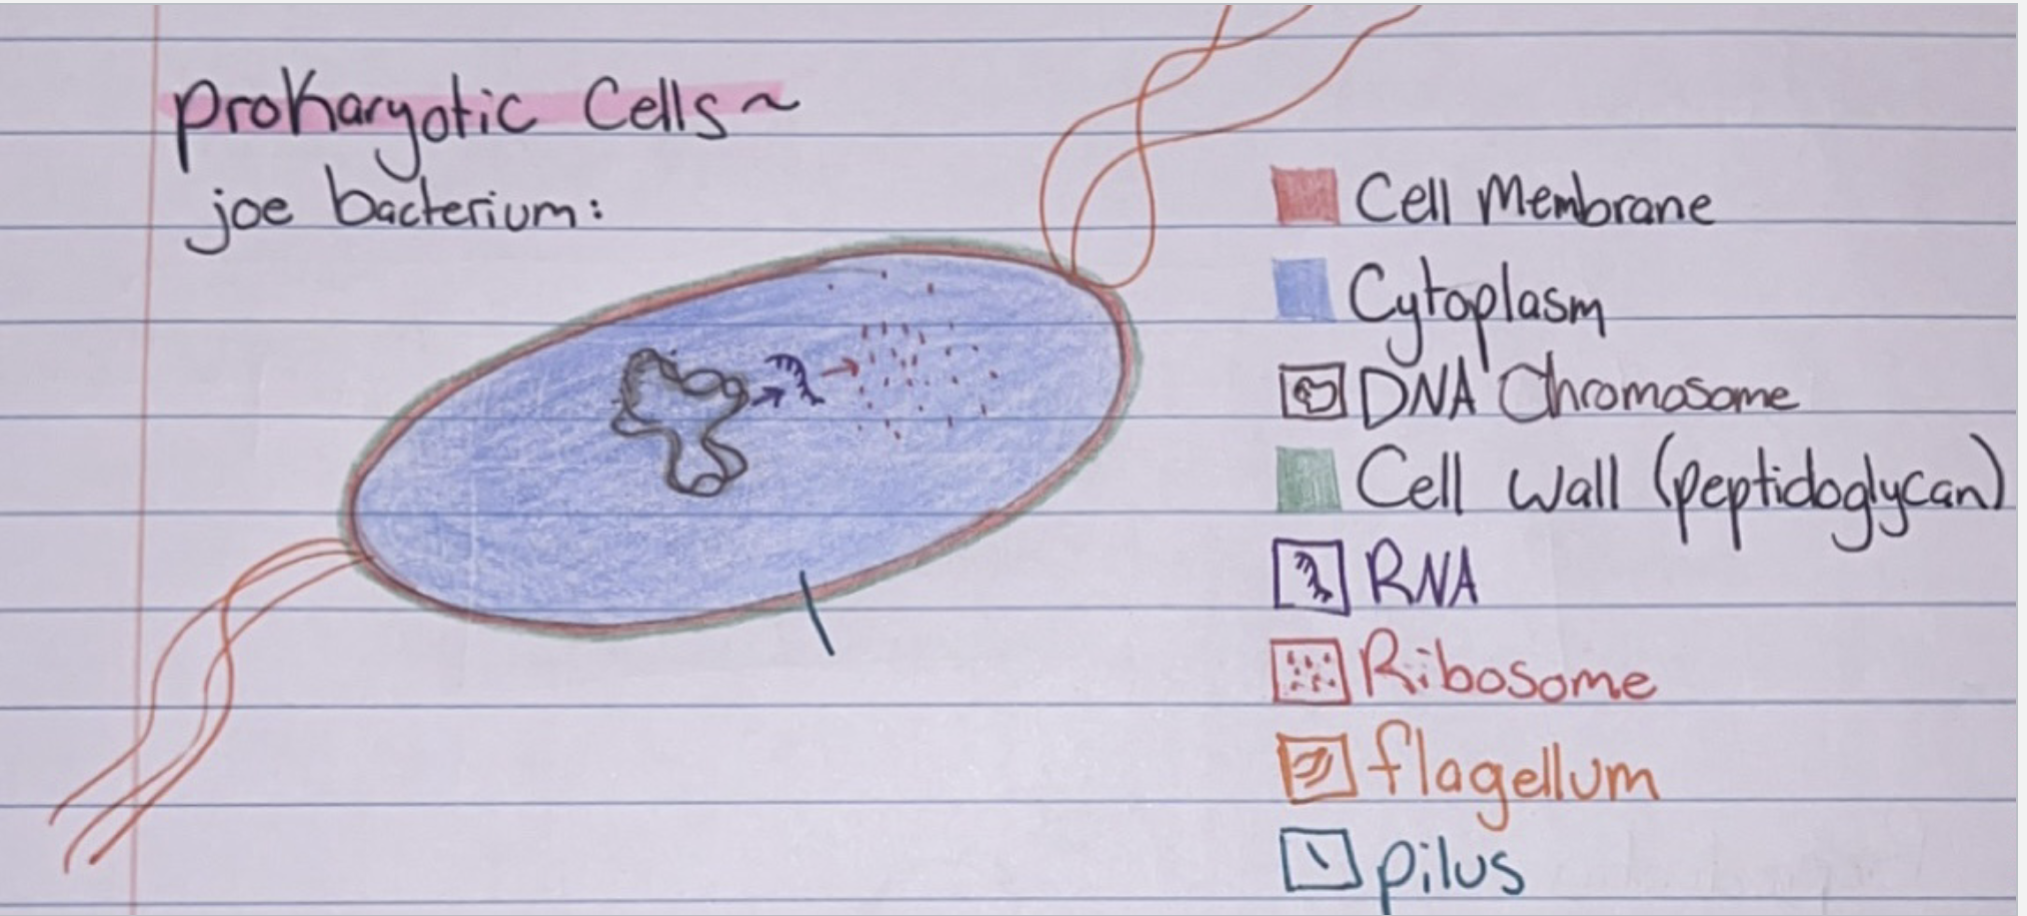 Prokaryotic Cells ~
joe bacterium:
Cell Membrane
Cytoplasm
DNA Chromosome
Cell Wall (peptidoglycan)
RNA
Ribosome
flagellum
pilus